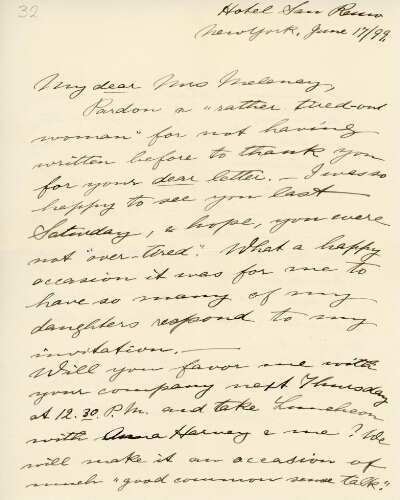 32
Hotel San Remo
New York, June 17/99.
My dear Mrs Meloney,
Pardon a "rather tired-out
woman" for not having
written before to thank you
for your dear letter. — I was so
happy to see you last
Saturday, & hope, you were
not "over-tired". What a happy
occasion it was for me to
have so many of my
daughters respond to my
invitation. —
Will you favor me with
your company next Thursday
at 12.30 P.M. and take Luncheon
with Anna Harvey & me? We
will make it an occasion of
much "good common sense talk."